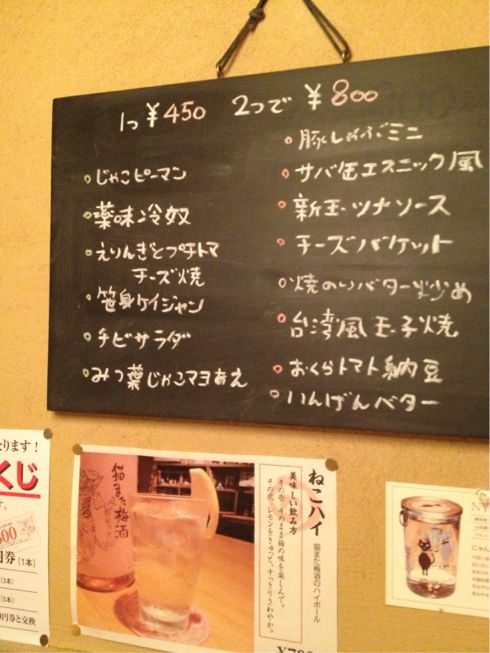 1つ ¥450 2つで ¥800
じゃこピーマン
薬味冷奴
えりんぎとプチトマ
チーズ焼
笹身ケイジャン
チビサラダ
みつ葉じゃこマヨあえ
豚しゃぶミニ
サバ缶エスニック風
新玉ツナソース
チーズバケット
焼のりバター炒め
台湾風玉子焼
おくらトマト納豆
いんげんバター
なります!
くじ
500
円券(1本)
(3本)
(5本)
円券と交換
猫また梅酒
ねこハイ
猫また梅酒のハイボール
美味しい飲み方
その壱、そのまま猫の味を楽しんで。
その弐、レモンをきゅっと、すっきりさわやか。
にゃん